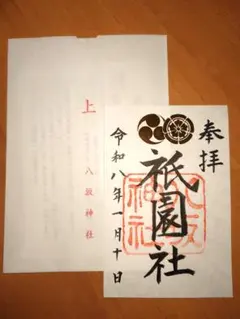 上
八坂神社
奉拝
祇園社
八坂神社
令和八年一月十日